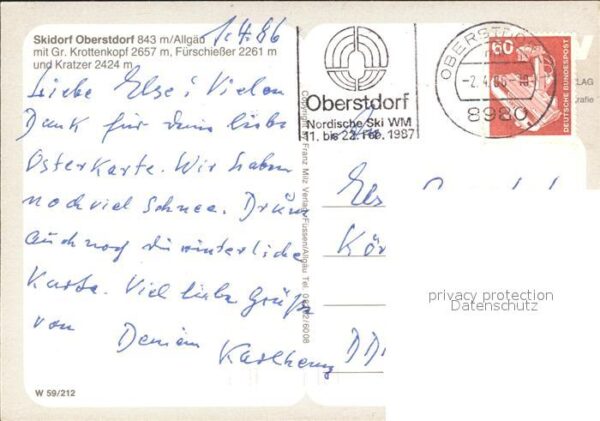 Skidorf Oberstdorf 843 m/Allgäu
mit Gr. Krottenkopf 2657 m, Fürschießer 2261 m
und Kratzer 2424 m
1.4.86
Liebe Else! Vielen
Dank für deine liebe
Osterkarte. Wir haben
noch viel Schnee. Drum
auch noch die winterliche
Karte. Viel liebe Grüße
von Deinem Karlheinz
W 59/212
Copyright Franz Milz Verlag Füssen/Allgäu Tel.
Oberstdorf
Nordische Ski WM
11. bis 22. Feb. 1987
OBERSTDORF
8980
60
DEUTSCHE BUNDESPOST
Els
Kör
DD
LAG
rafie
privacy protection
Datenschutz